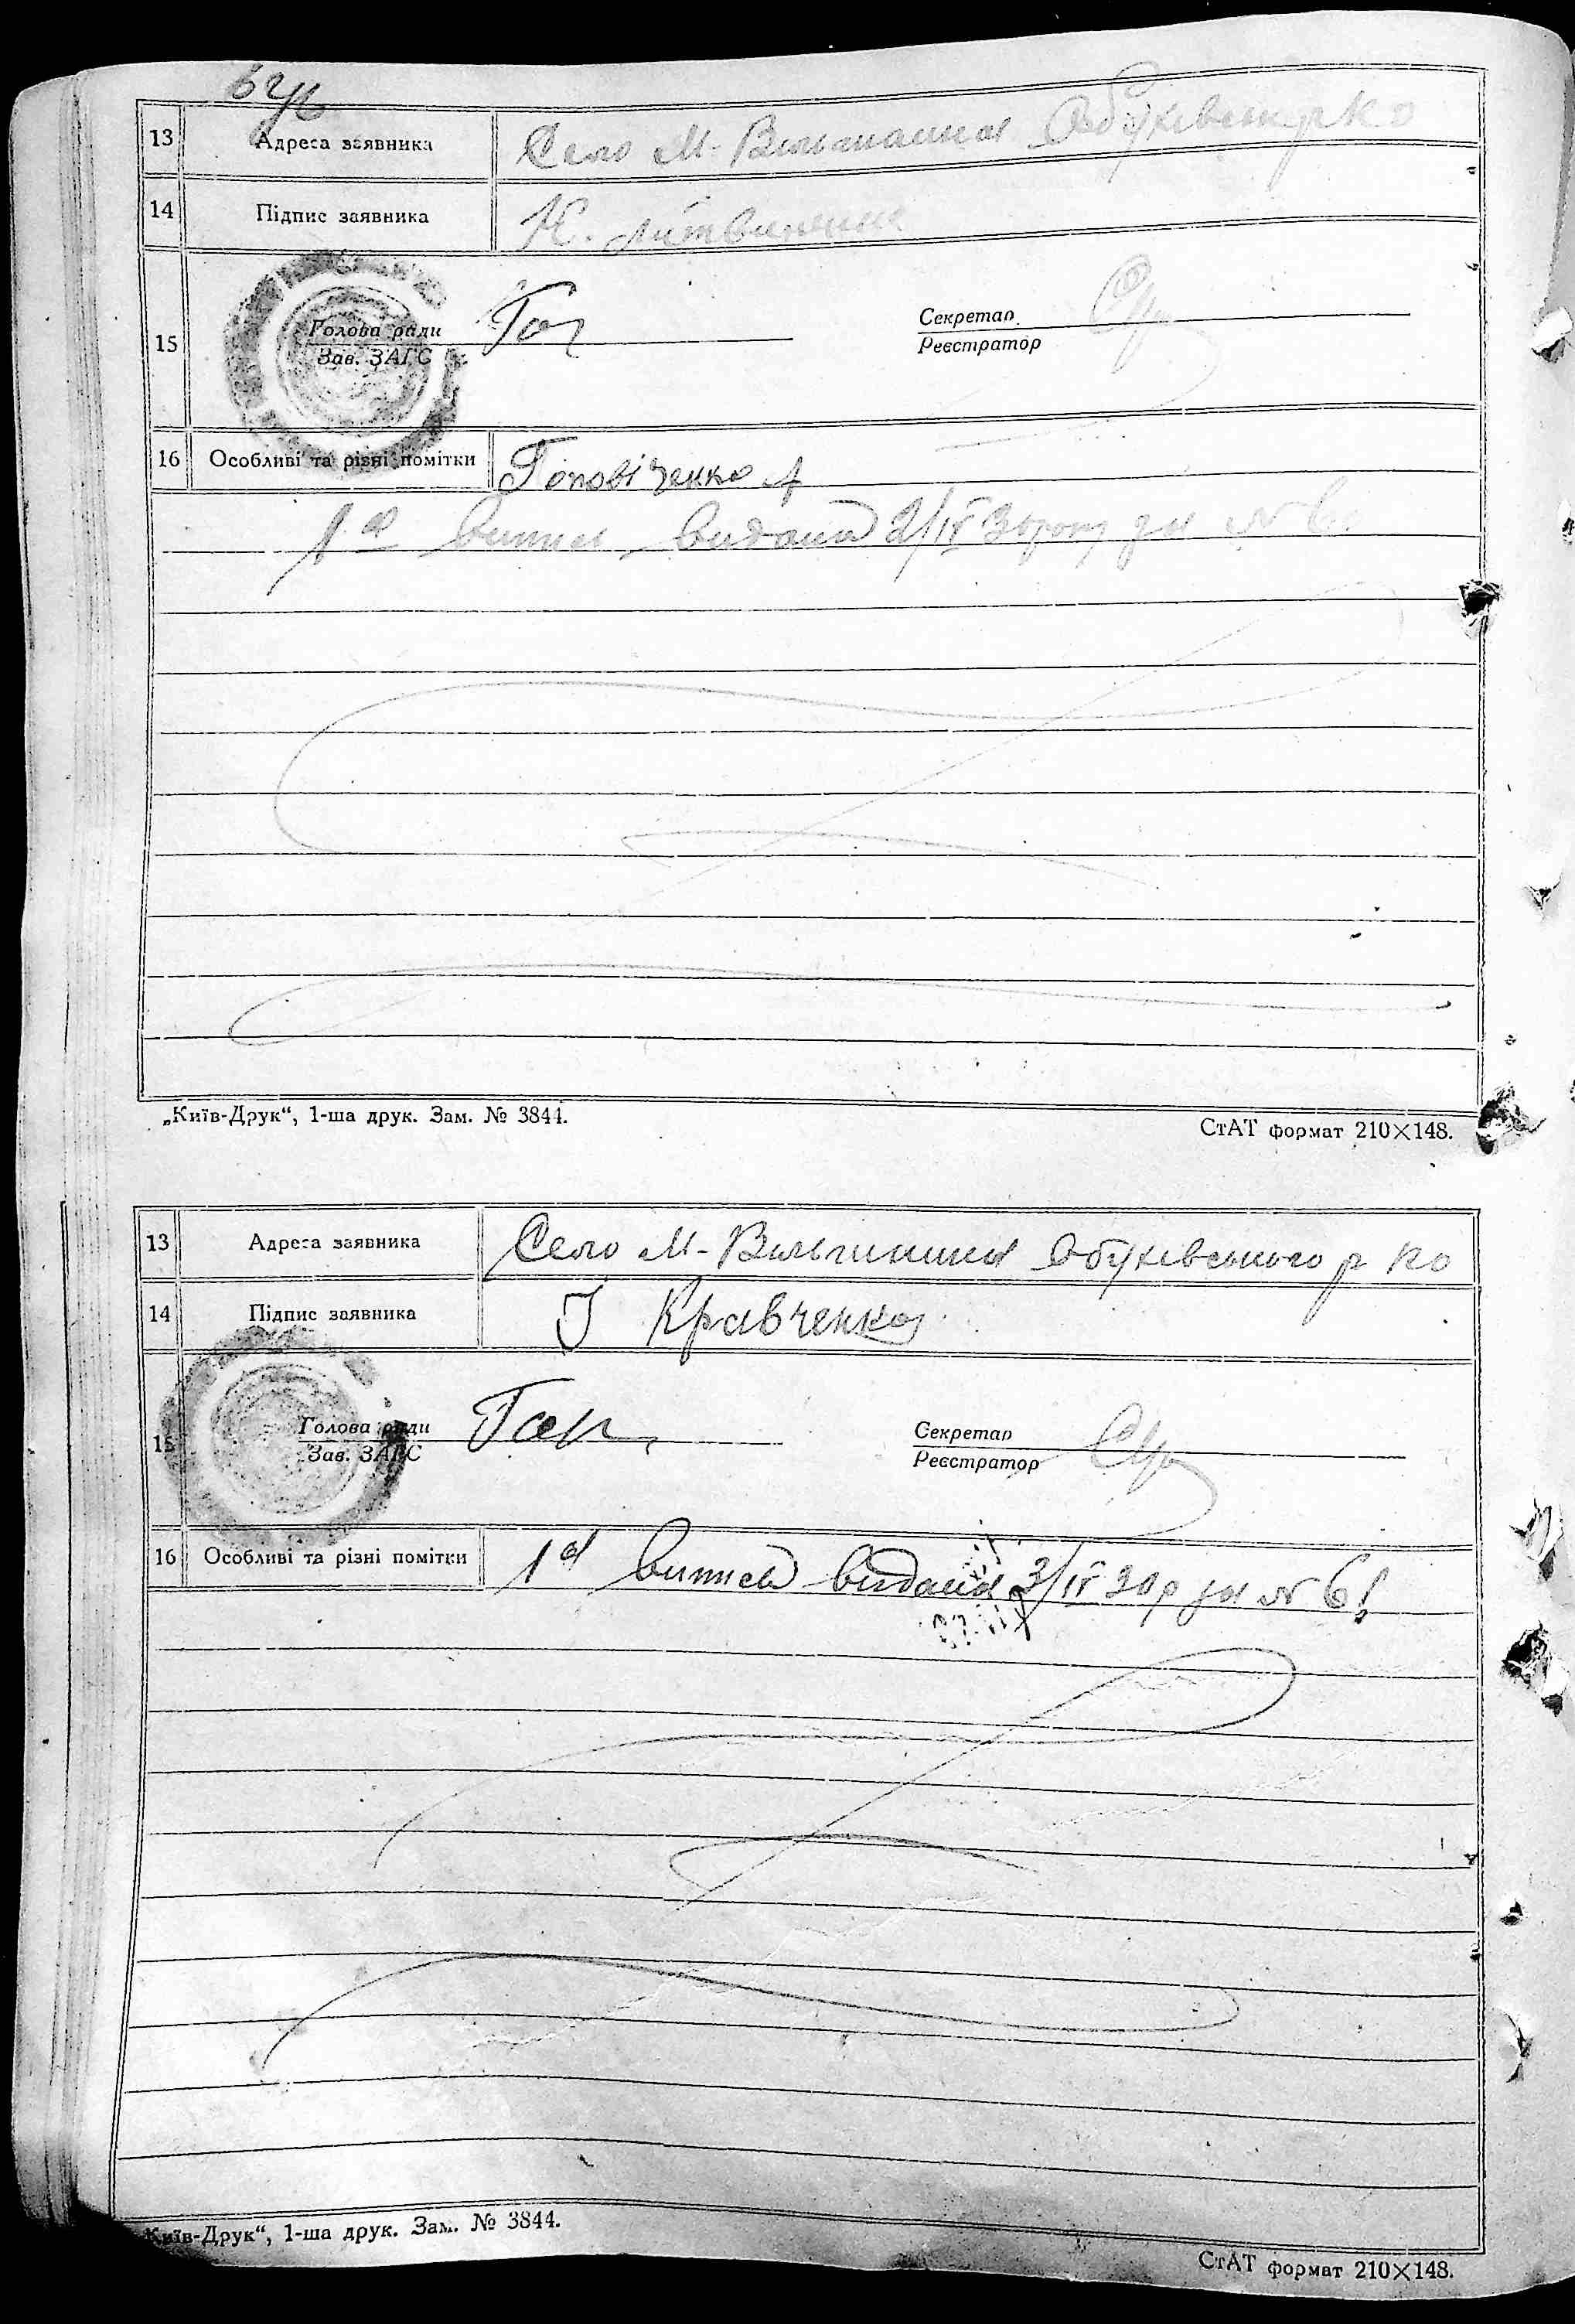 13 Адреса заявника Село М-Вільшанка Обухівськ р ко
14 Підпис заявника К. Литвиненко
15 Голова ради Зав. ЗАГС Секретар Реєстратор
16 Особливі та різні помітки Поповіченко А
1а випись видана 2/IV 30 року за №
„Київ-Друк“, 1-ша друк. Зам. № 3844.
СтАТ формат 210×148.
13 Адреса заявника Село М-Вільшанка Обухівського р ко
14 Підпис заявника І Кравченко
15 Голова ради Зав. ЗАГС Секретар Реєстратор
16 Особливі та різні помітки 1а випись видана 3/IV 30 р за №
Київ-Друк“, 1-ша друк. Зам. № 3844.
СтАТ формат 210×148.